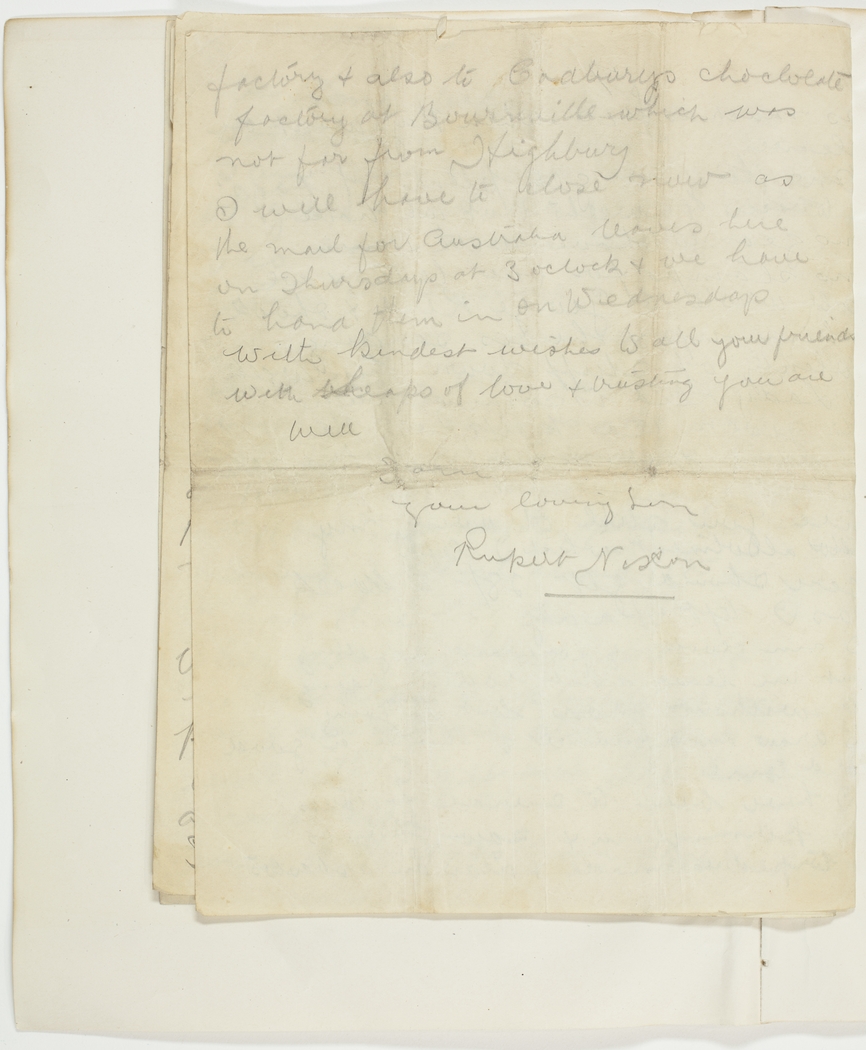 factory & also to Cadburys choclolate
factory at Bournville which was
not far from Highbury
I will have to close now as
the mail for Australia leaves here
on Thursdays at 3 oclock & we have
to hand them in on Wednesdays
with kindest wishes to all your friends
with heaps of love & trusting you are
well
I am
your loving Son
Rupert Nixon